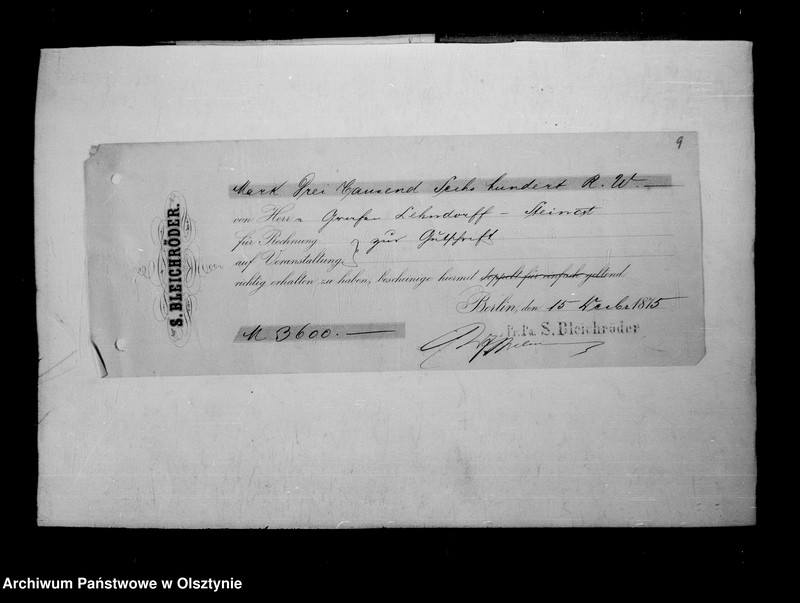 9
S. BLEICHRÖDER.
Mark Drei Tausend Sechs hundert R. W. —
von Herrn Grafen Lehndorff - Steinort
für Rechnung } zur Gutschrift
auf Veranstaltung
richtig erhalten zu haben, bescheinige hiermit doppelt für einfach geltend
Berlin, den 15 Decbr 1875
M 3600. —
Pr. Pa. S. Bleichröder
Archiwum Państwowe w Olsztynie